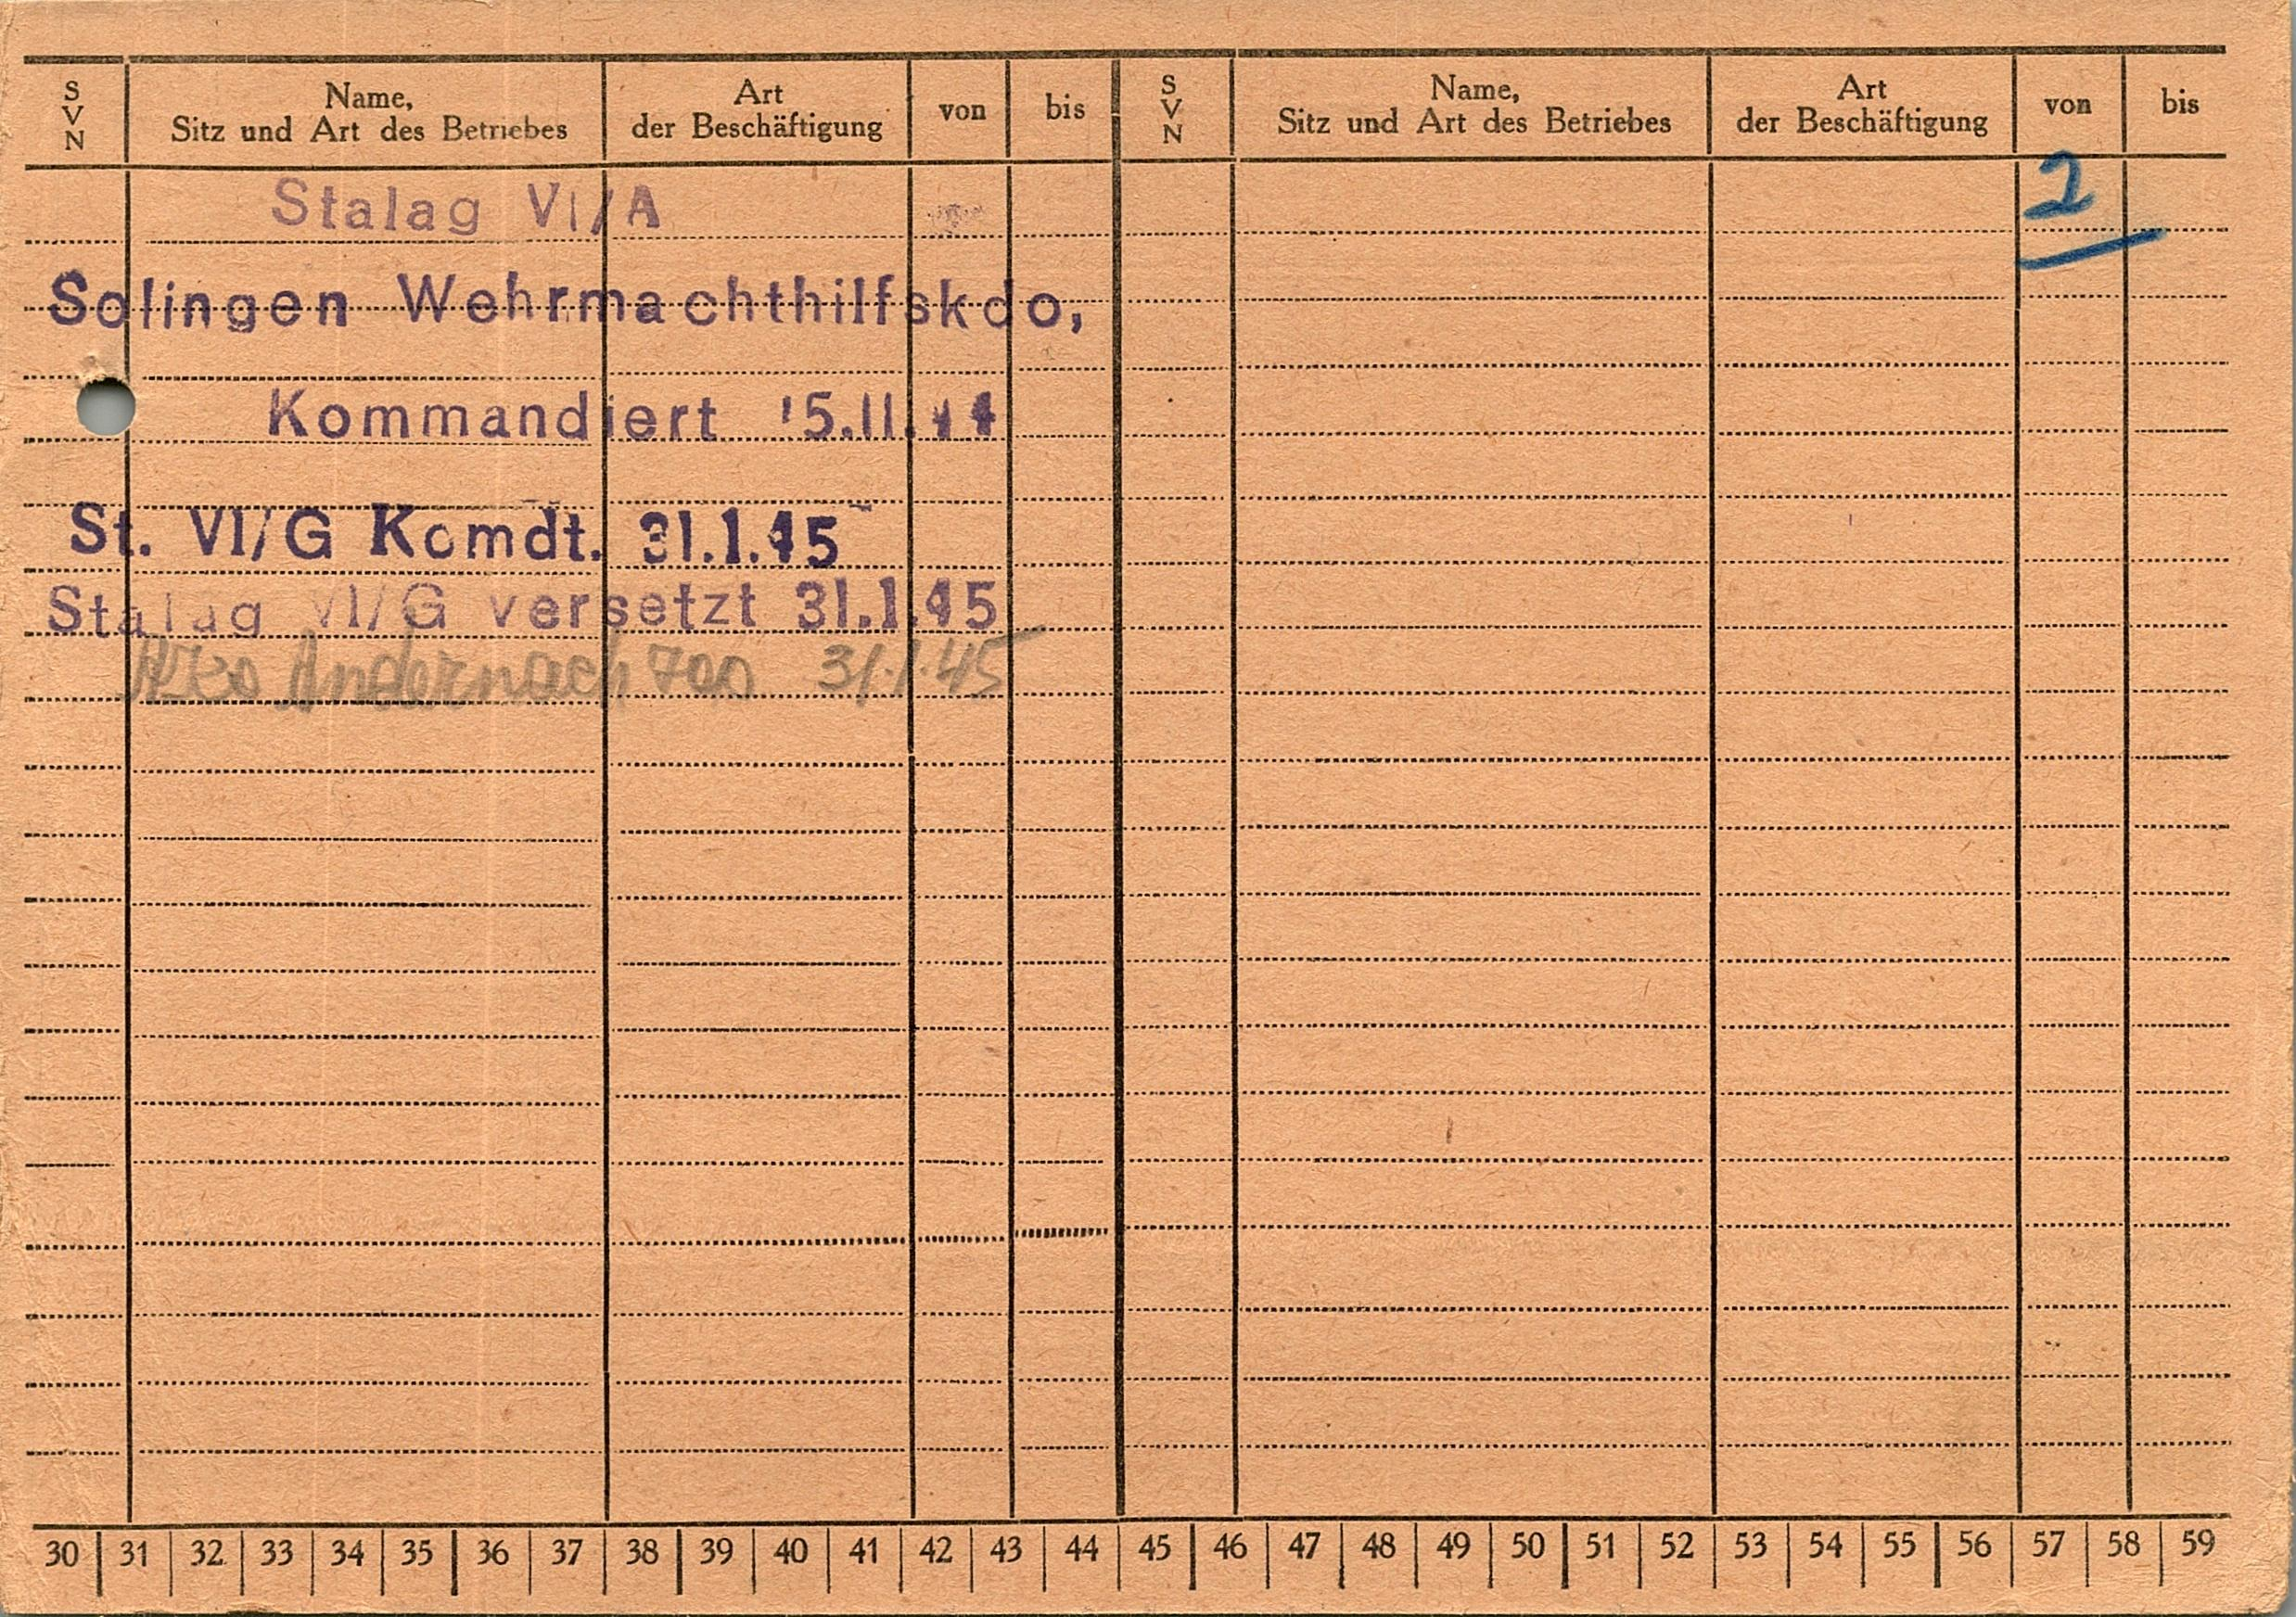 S V N Name, Sitz und Art des Betriebes Art der Beschäftigung von bis S V N Name, Sitz und Art des Betriebes Art der Beschäftigung von bis
2
Stalag VI/A
Solingen Wehrmachthilfskdo,
Kommandiert 15.11.44
St. VI/G Komdt. 31.1.45
Stalag VI/G versetzt 31.1.45
Andernach 700 31.1.45
30 31 32 33 34 35 36 37 38 39 40 41 42 43 44 45 46 47 48 49 50 51 52 53 54 55 56 57 58 59